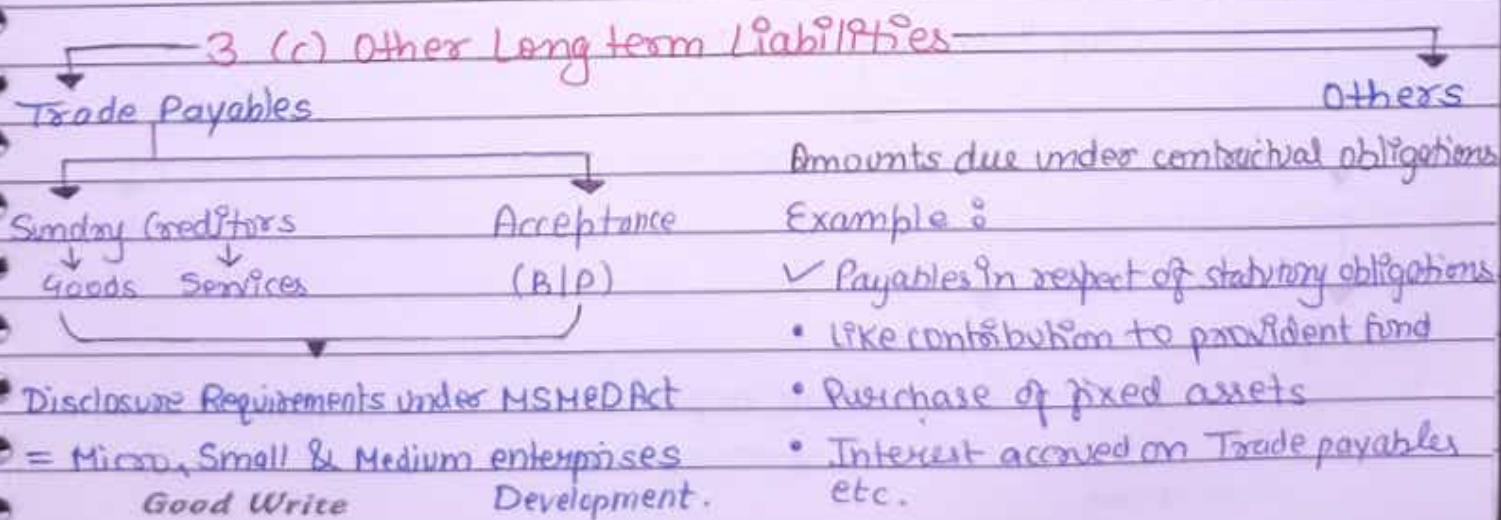 3 (c) Other Long term Liabilities
Trade Payables
Sundry Creditors
Goods Services
Acceptance
(B/P)
Disclosure Requirements under MSMED Act
= Micro, Small & Medium enterprises
Development.
Good Write
Others
Amounts due under contractual obligations
Example :
✓ Payables in respect of statutory obligations
• like contribution to provident fund
• Purchase of fixed assets
• Interest accrued on Trade payables
etc.